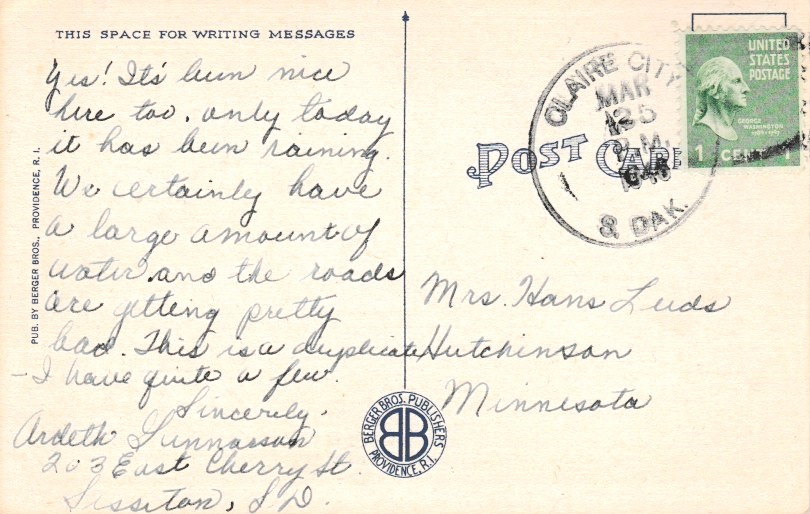 THIS SPACE FOR WRITING MESSAGES
Yes! It's been nice
here too. only today
it has been raining.
We certainly have
a large amount of
water and the roads
are getting pretty
bad. This is a duplicate
- I have quite a few.
Sincerely,
Ardeth
203 East Cherry St.
Sisseton, S.D.
PUB. BY BERGER BROS., PROVIDENCE, R. I.
POST CARD
CLAIRE CITY
MAR
25
P.M.
S. DAK.
UNITED
STATES
POSTAGE
GEORGE
WASHINGTON
1 CENT 1
Mrs. Hans Luds
Hutchinson
Minnesota
BERGER BROS. PUBLISHERS
BB
PROVIDENCE, R.I.